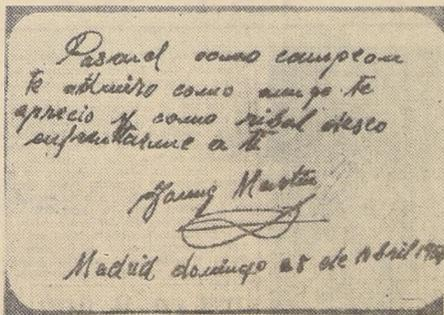 Pasarel como campeon
te admiro como amigo te
aprecio y como ribal deseo
enfrentarme a ti
Martin
Madrid domingo 28 de Abril